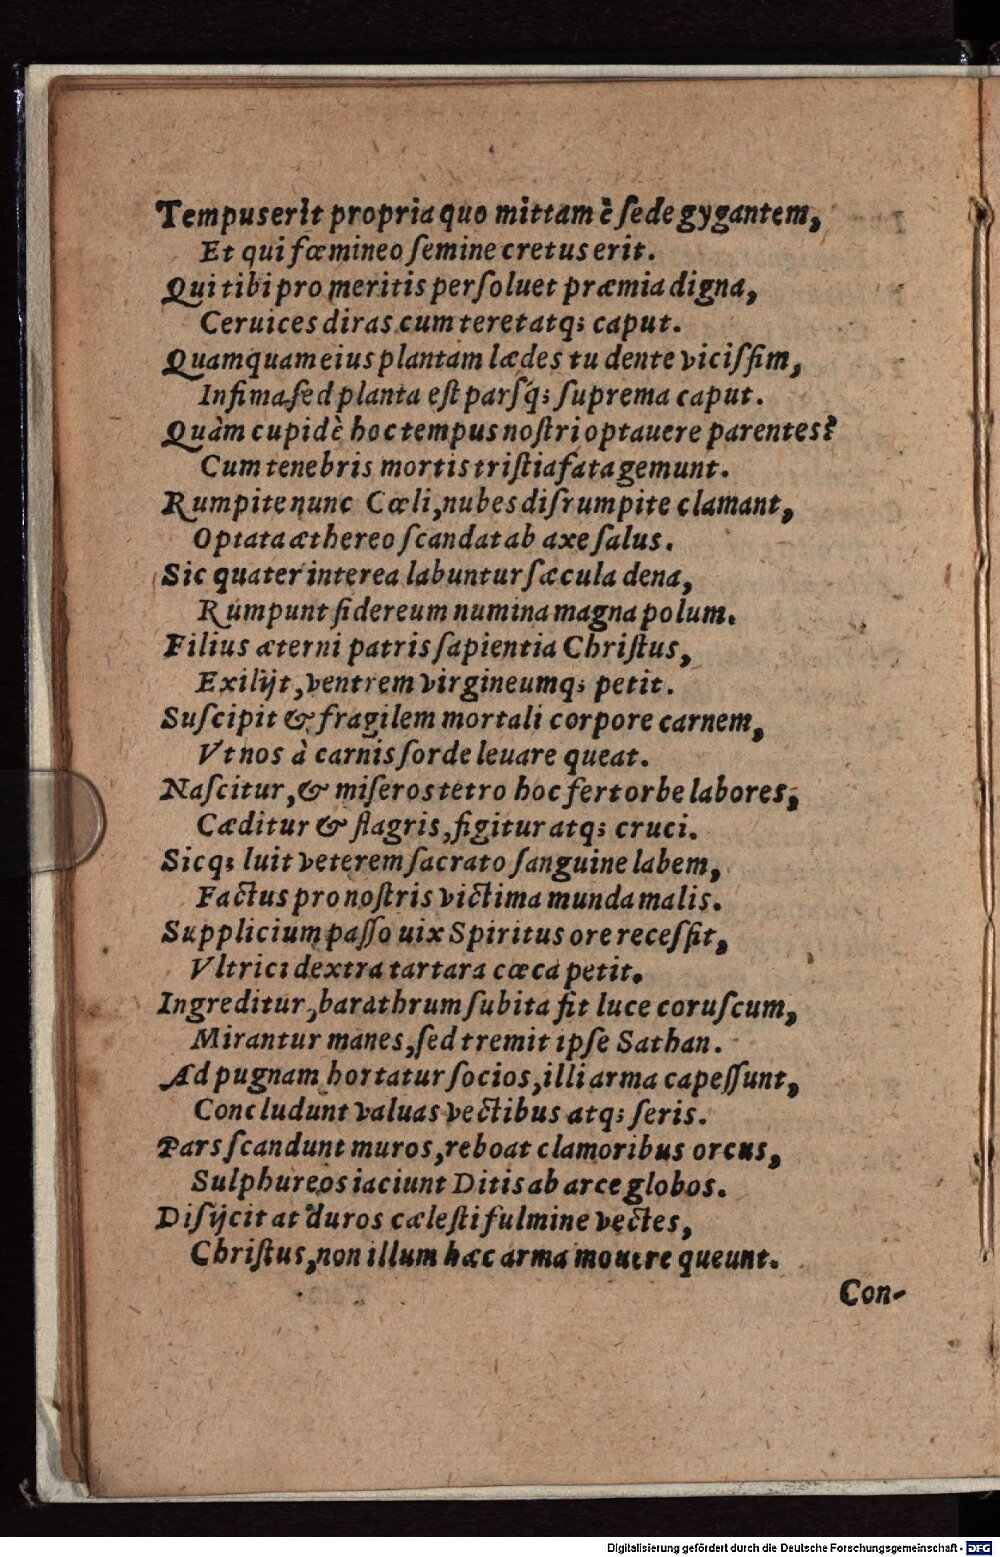 Tempus erit propria quo mittam è ſede gygantem,
Et qui fœmineo ſemine cretus erit.
Qui tibi pro meritis perſoluet præmia digna,
Ceruices diras cum teret atq; caput.
Quamquam eius plantam lædes tu dente viciſſim,
Infima ſed planta eſt parſq́; ſuprema caput.
Quàm cupidè hoc tempus noſtri optauere parentes?
Cum tenebris mortis triſtia fata gemunt.
Rumpite nunc Cœli, nubes diſrumpite clamant,
Optata æthereo ſcandat ab axe ſalus.
Sic quater interea labuntur ſæcula dena,
Rumpunt ſidereum numina magna polum.
Filius æterni patris ſapientia Chriſtus,
Exilijt, ventrem virgineumq; petit.
Suſcipit & fragilem mortali corpore carnem,
Vt nos à carnis ſorde leuare queat.
Naſcitur, & miſeros tetro hoc fert orbe labores,
Cæditur & flagris, figitur atq; cruci.
Sicq; luit veterem ſacrato ſanguine labem,
Factus pro noſtris victima munda malis.
Supplicium paſſo uix Spiritus ore receſſit,
Vltrici dextra tartara cœca petit.
Ingreditur, barathrum ſubita fit luce coruſcum,
Mirantur manes, ſed tremit ipſe Sathan.
Ad pugnam hortatur ſocios, illi arma capeſſunt,
Concludunt valuas vectibus atq; ſeris.
Pars ſcandunt muros, reboat clamoribus orcus,
Sulphureos iaciunt Ditis ab arce globos.
Diſijcit at duros cæleſti fulmine vectes,
Chriſtus, non illum hæc arma mouere queunt.
Con-
Digitalisierung gefördert durch die Deutsche Forschungsgemeinschaft - DFG